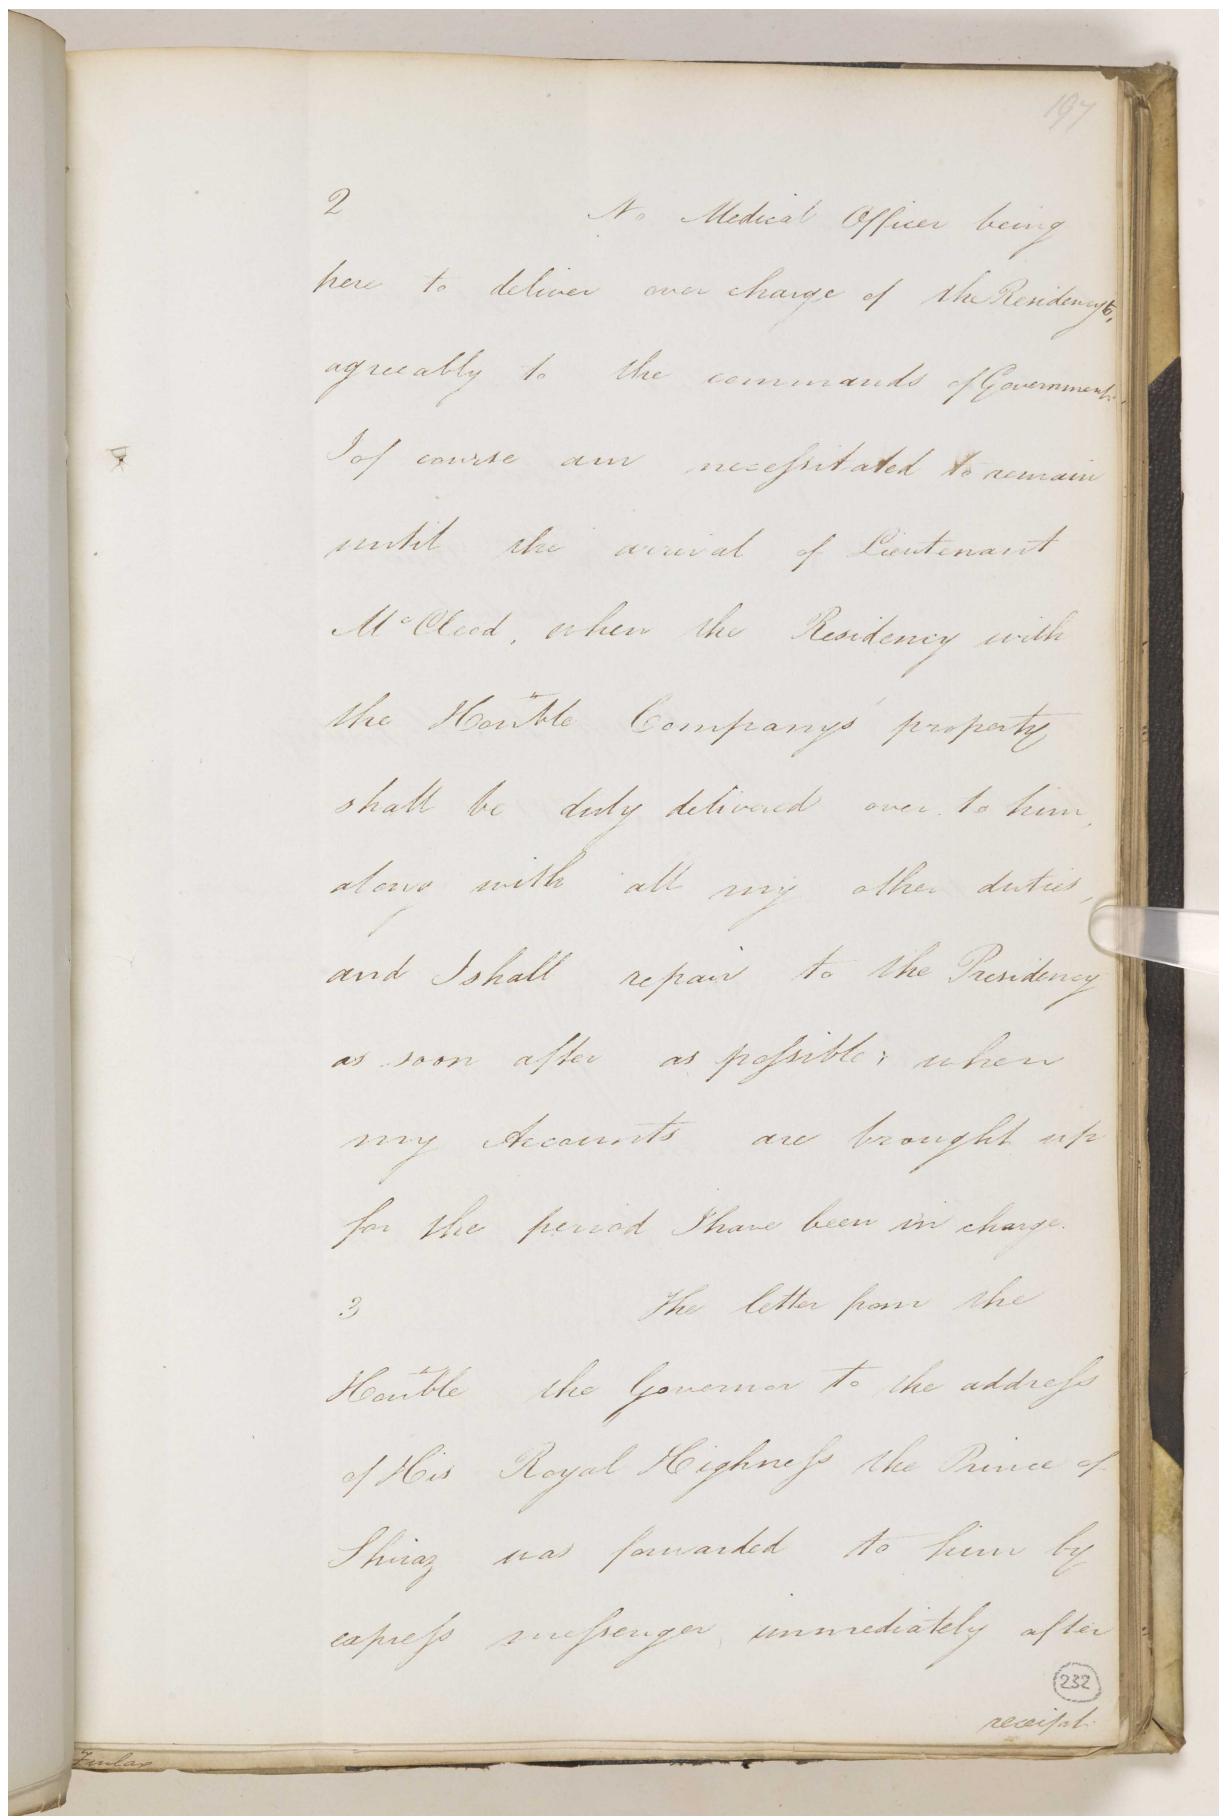 197
2 No Medical Officer being
here to deliver over charge of the Residency to,
agreeably to the commands of Government,
I of course am necessitated to remain
until the arrival of Lieutenant
McCleod, when the Residency with
the Honble Companys' property
shall be duly delivered over to him,
along with all my other duties,
and I shall repair to the Presidency
as soon after as possible, when
my Accounts are brought up
for the period I have been in charge.
3 The letter from the
Honble the Governor to the address
of His Royal Highness the Prince of
Shiraz was forwarded to him by
express messenger immediately after
232
receipt